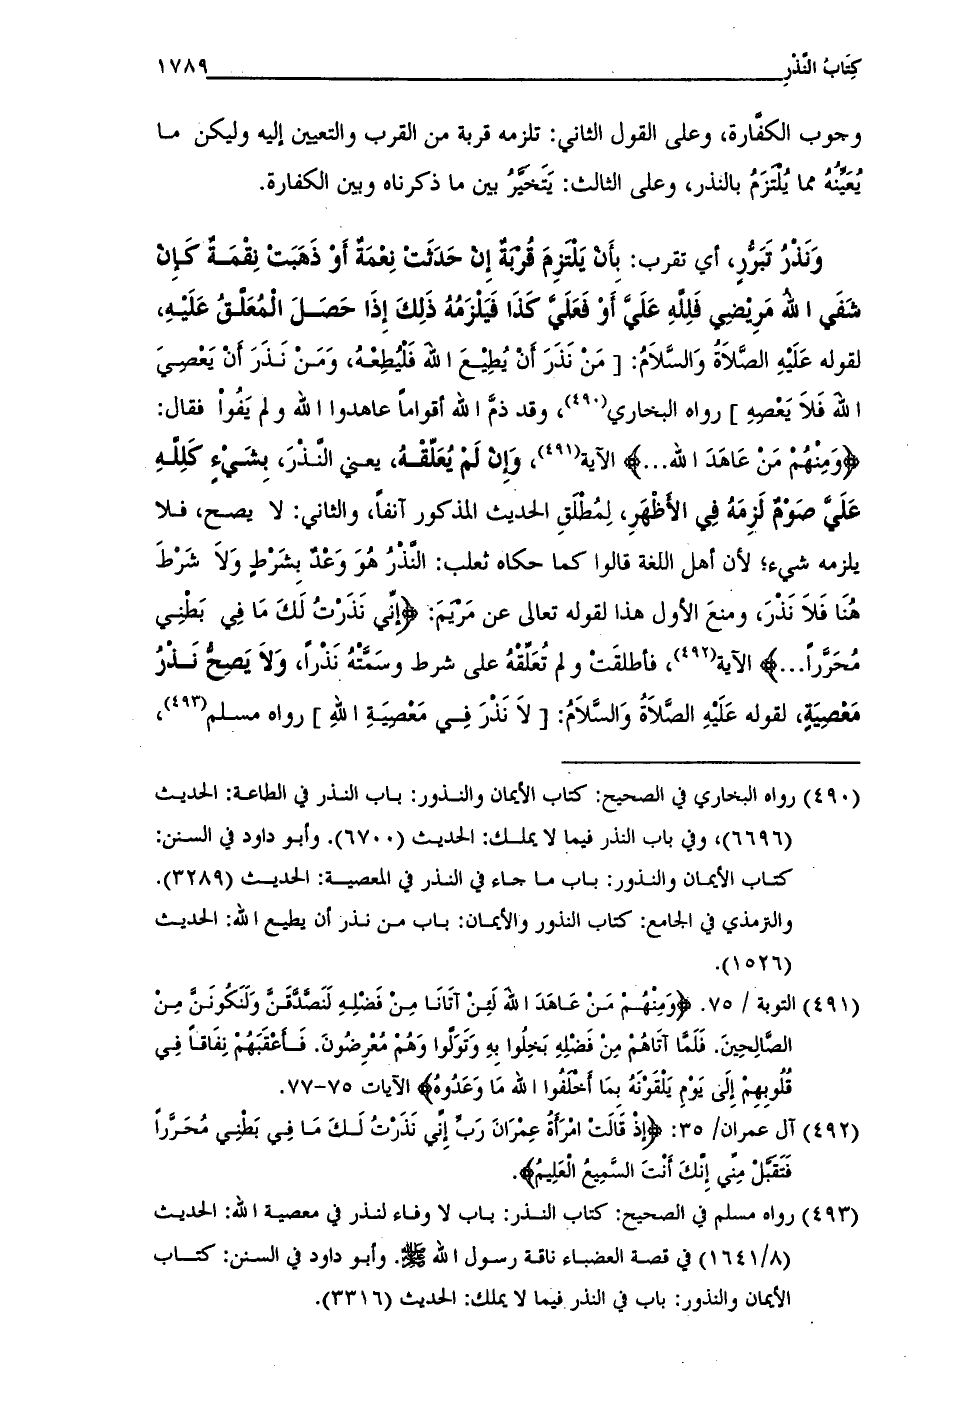 كِتَابُ النَّذْرِ ١٧٨٩
وجوب الكفَّارة، وعلى القول الثاني: تلزمه قربة من القرب والتعيين إليه وليكن ما
يُعَيِّنُهُ مما يُلْتَزَمُ بالنذر، وعلى الثالث: يَتَخَيَّرُ بين ما ذكرناه وبين الكفارة.
وَنَذْرُ تَبَرُّرٍ، أي تقرب: بِأَنْ يَلْتَزِمَ قُرْبَةً إِنْ حَدَثَتْ نِعْمَةٌ أَوْ ذَهَبَتْ نِقْمَةٌ كَإِن
شَفَى اللهُ مَرِيْضِي فَلِلَّهِ عَلَيَّ أَوْ فَعَلَيَّ كَذَا فَيَلْزَمُهُ ذَلِكَ إِذَا حَصَلَ الْمُعَلَّقُ عَلَيْهِ،
لقوله عَلَيْهِ الصَّلاَةُ وَالسَّلاَمُ: [ مَنْ نَذَرَ أَنْ يُطِيْعَ اللهَ فَلْيُطِعْهُ، وَمَنْ نَذَرَ أَنْ يَعْصِيَ
اللهَ فَلاَ يَعْصِهِ ] رواه البخاري(٤٩٠)، وقد ذمَّ الله أقواماً عاهدوا الله ولم يَفُواْ فقال:
﴿وَمِنْهُمْ مَنْ عَاهَدَ الله...﴾ الآية(٤٩١)، وَإِنْ لَمْ يُعَلِّقْهُ، يعني النَّذْرَ، بِشَيْءٍ كَلِلَّهِ
عَلَيَّ صَوْمٌ لَزِمَهُ فِي الأَظْهَرِ، لِمُطْلَقِ الحديث المذكور آنفاً، والثاني: لا يصح، فلا
يلزمه شيء؛ لأن أهل اللغة قالوا كما حكاه ثعلب: النَّذْرُ هُوَ وَعْدٌ بِشَرْطٍ وَلاَ شَرْطَ
هُنَا فَلاَ نَذْرَ، ومنعَ الأول هذا لقوله تعالى عن مَرْيَمَ: ﴿إِنِّي نَذَرْتُ لَكَ مَا فِي بَطْنِي
مُحَرَّراً...﴾ الآية(٤٩٢)، فأطلقَتْ ولم تُعَلِّقْهُ على شرط وسَمَّتْهُ نَذْراً، وَلاَ يَصِحُّ نَذْرُ
مَعْصِيَةٍ، لقوله عَلَيْهِ الصَّلاَةُ وَالسَّلاَمُ: [ لاَ نَذْرَ فِي مَعْصِيَةِ اللهِ ] رواه مسلم(٤٩٣)،
(٤٩٠) رواه البخاري في الصحيح: كتاب الأيمان والنذور: باب النذر في الطاعة: الحديث
(٦٦٩٦)، وفي باب النذر فيما لا يملك: الحديث (٦٧٠٠). وأبو داود في السنن:
كتاب الأيمان والنذور: باب ما جاء في النذر في المعصية: الحديث (٣٢٨٩).
والترمذي في الجامع: كتاب النذور والأيمان: باب من نذر أن يطيع الله: الحديث
(١٥٢٦).
(٤٩١) التوبة / ٧٥. ﴿وَمِنْهُمْ مَنْ عَاهَدَ اللهَ لَئِنْ آتَانَا مِنْ فَضْلِهِ لَنَصَّدَّقَنَّ وَلَنَكُونَنَّ مِنَ
الصَّالِحِينَ. فَلَمَّا آتَاهُمْ مِنْ فَضْلِهِ بَخِلُوا بِهِ وَتَوَلَّوا وَهُمْ مُعْرِضُونَ. فَأَعْقَبَهُمْ نِفَاقاً فِي
قُلُوبِهِمْ إِلَى يَوْمِ يَلْقَوْنَهُ بِمَا أَخْلَفُوا اللهَ مَا وَعَدُوهُ﴾ الآيات ٧٥-٧٧.
(٤٩٢) آل عمران/ ٣٥: ﴿إِذْ قَالَتْ امْرَأَةُ عِمْرَانَ رَبِّ إِنِّي نَذَرْتُ لَكَ مَا فِي بَطْنِي مُحَرَّراً
فَتَقَبَّلْ مِنِّي إِنَّكَ أَنْتَ السَّمِيعُ الْعَلِيمُ﴾.
(٤٩٣) رواه مسلم في الصحيح: كتاب النذر: باب لا وفاء لنذر في معصية الله: الحديث
(١٦٤١/٨) في قصة العضباء ناقة رسول الله ﷺ. وأبو داود في السنن: كتاب
الأيمان والنذور: باب في النذر فيما لا يملك: الحديث (٣٣١٦).